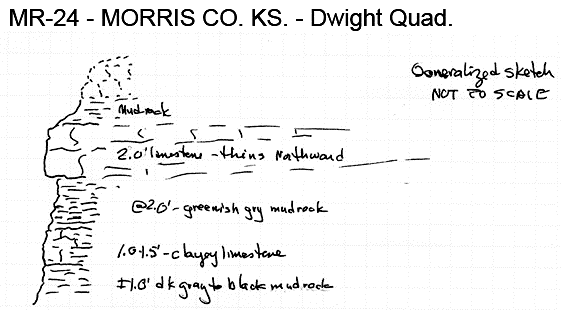 MR-24 - MORRIS CO. KS. - Dwight Quad.
Generalized sketch
NOT TO SCALE
Mudrock
2.0' limestone - thins Northward
@2.0' - greenish gry mudrock
1.0-1.5' - clayey limestone
±1.0' dk gray to black mudrock